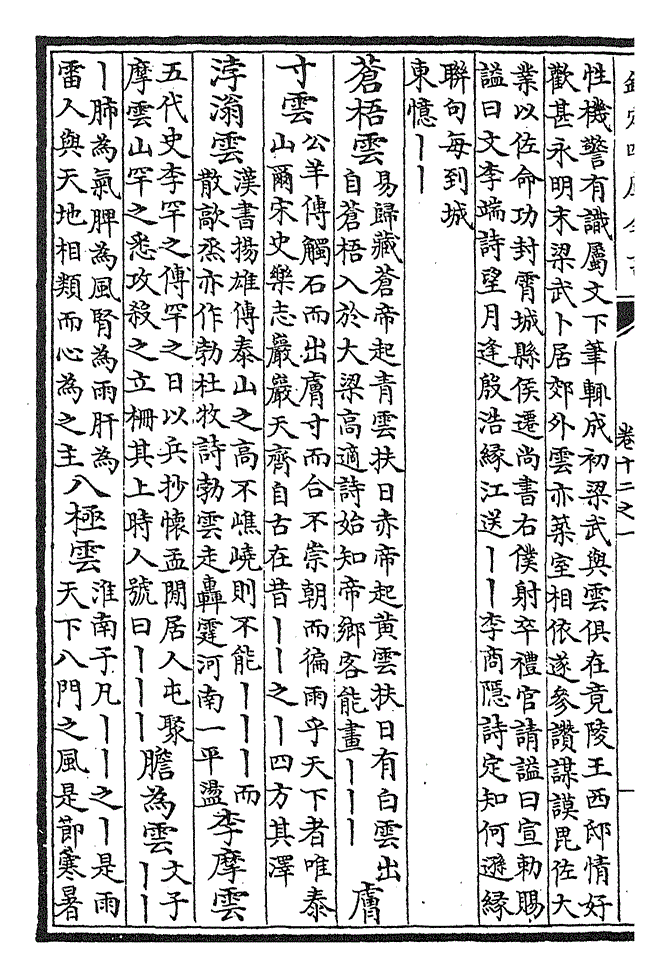 欽定四庫全書
卷十二之一
性機警有識屬文下筆輒成初梁武與雲俱在竟陵王西邸情好
歡甚永明末梁武卜居郊外雲亦築室相依遂參讚謀謨毘佐大
業以佐命功封霄城縣侯遷尚書右僕射卒禮官請諡曰宣勅賜
諡曰文李端詩望月逢殷浩緣江送丨丨李商隱詩定知何遜緣
聯句每到城
東憶丨丨
蒼梧雲
易歸藏蒼帝起青雲扶日赤帝起黄雲扶日有白雲出
自蒼梧入於大梁高適詩始知帝鄉客能畫丨丨丨
膚
寸雲
公羊傳觸石而出膚寸而合不崇朝而徧雨乎天下者唯泰
山爾宋史樂志巖巖天齊自古在昔丨丨之丨四方其澤
浡滃雲
漢書揚雄傳泰山之高不嶕嶢則不能丨丨丨而
散歊烝亦作勃杜牧詩勃雲走轟霆河南一平盪
李摩雲
五代史李罕之傳罕之日以兵抄懷孟閒居人屯聚
摩雲山罕之悉攻殺之立柵其上時人號曰丨丨丨
膽為雲
文子
丨丨
丨肺為氣脾為風腎為雨肝為
雷人與天地相類而心為之主
八極雲
淮南子凡丨丨之丨是雨
天下八門之風是節寒暑